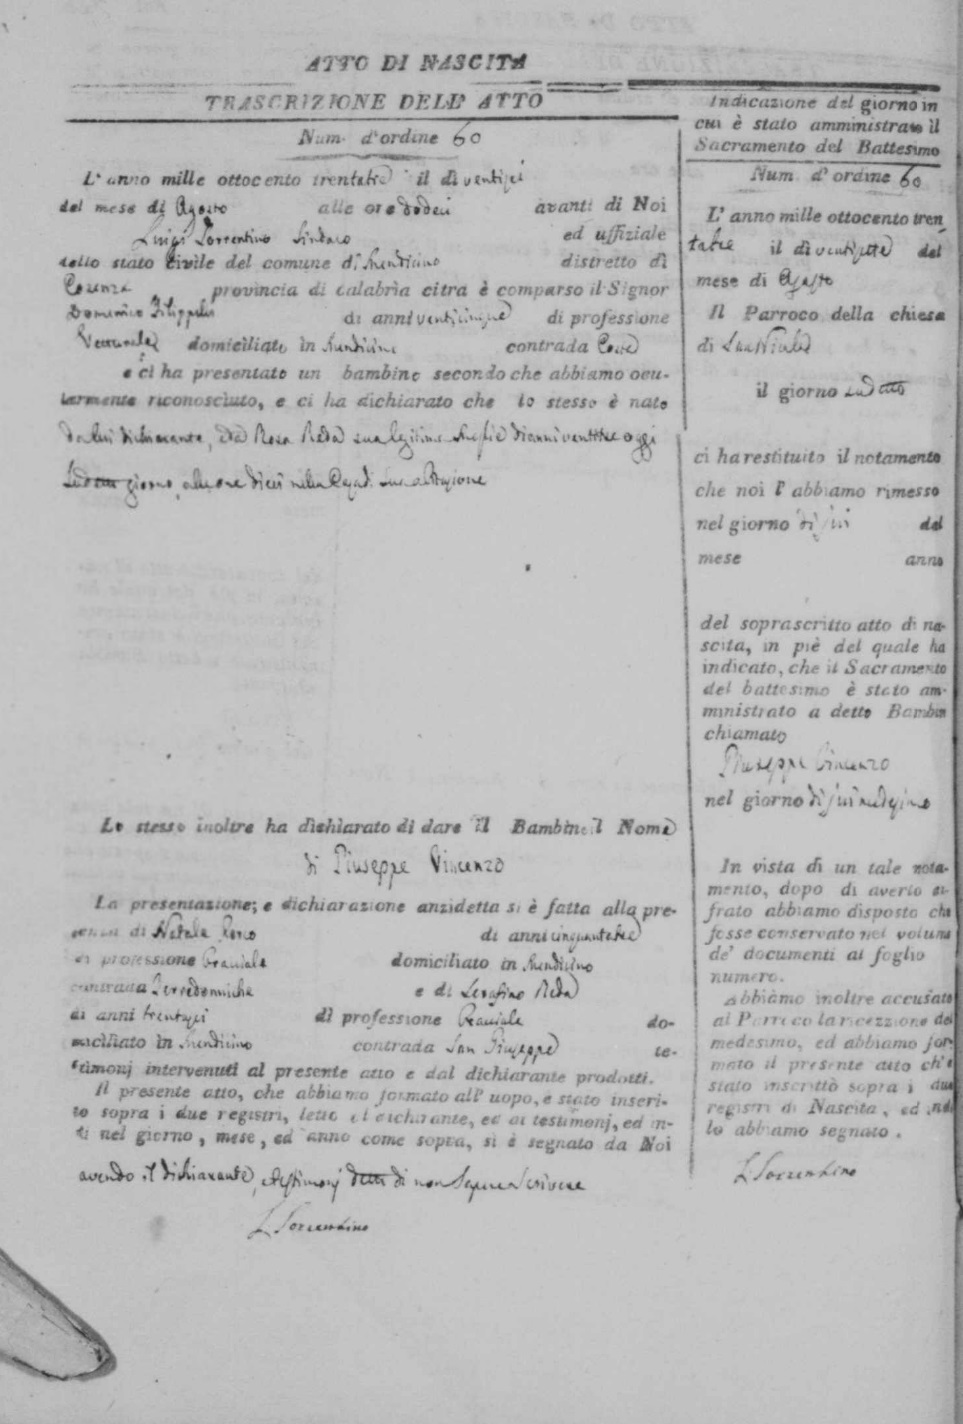 ATTO DI NASCITA
TRASCRIZIONE DELL' ATTO
Num. d'ordine 60
L' anno mille ottocento trentatre il dì ventisei
del mese di Agosto alle ore dodeci avanti di Noi
Luigi Sorrentino Sindaco ed uffiziale
dello stato Civile del comune di Mendicino distretto di
Cosenza provincia di calabria citra è comparso il Signor
Domenico Filippelli di anni venticinque di professione
domiciliato in Mendicino contrada
e ci ha presentato un bambino secondo che abbiamo ocu-
larmente riconosciuto, e ci ha dichiarato che lo stesso è nato
da lui dichiarante, e da Rosa Reda sua legitima Moglie d'anni ventitre oggi
sudetto giorno, alle ore dieci nella Casa di Sua abitazione
Lo stesso inoltre ha dichiarato di dare il Bambino il Nome
di Giuseppe Vincenzo
La presentazione; e dichiarazione anzidetta si è fatta alla pre-
senza di Natale di anni cinquantatre
di professione Bracciale domiciliato in Mendicino
contrada e di Serafino Reda
di anni trentasei di professione Bracciale do-
miciliato in Mendicino contrada San Giuseppe te-
stimonj intervenuti al presente atto e dal dichiarante prodotti.
Il presente atto, che abbiamo formato all' uopo, è stato inseri-
to sopra i due registri, letto al dichirante, ed ai testimonj, ed in-
di nel giorno, mese, ed anno come sopra, si è segnato da Noi
avendo il dichiarante, e testimonj detto di non Sapere Scrivere
L Sorrentino
Indicazione del giorno in
cui è stato amministrato il
Sacramento del Battesimo
Num. d' ordine 60
L' anno mille ottocento tren
tatre il dì ventisette del
mese di Agosto
Il Parroco della chiesa
di San Nicola
il giorno sudetto
ci ha restituito il notamento
che noi l' abbiamo rimesso
nel giorno del
mese anno
del soprascritto atto di na-
scita, in piè del quale ha
indicato, che il Sacramento
del battesimo è stato am-
ministrato a detto Bambin
chiamato
Giuseppe Vincenzo
nel giorno medesimo
In vista di un tale nota-
mento, dopo di averlo ci-
frato abbiamo disposto che
fosse conservato nel volume
de' documenti al foglio
numero.
Abbiamo inoltre accusato
al Parroco la ricezzione del
medesimo, ed abbiamo for-
mato il presente atto ch'è
stato inscritto sopra i due
registri di Nascita, ed indi
lo abbiamo segnato.
L. Sorrentino